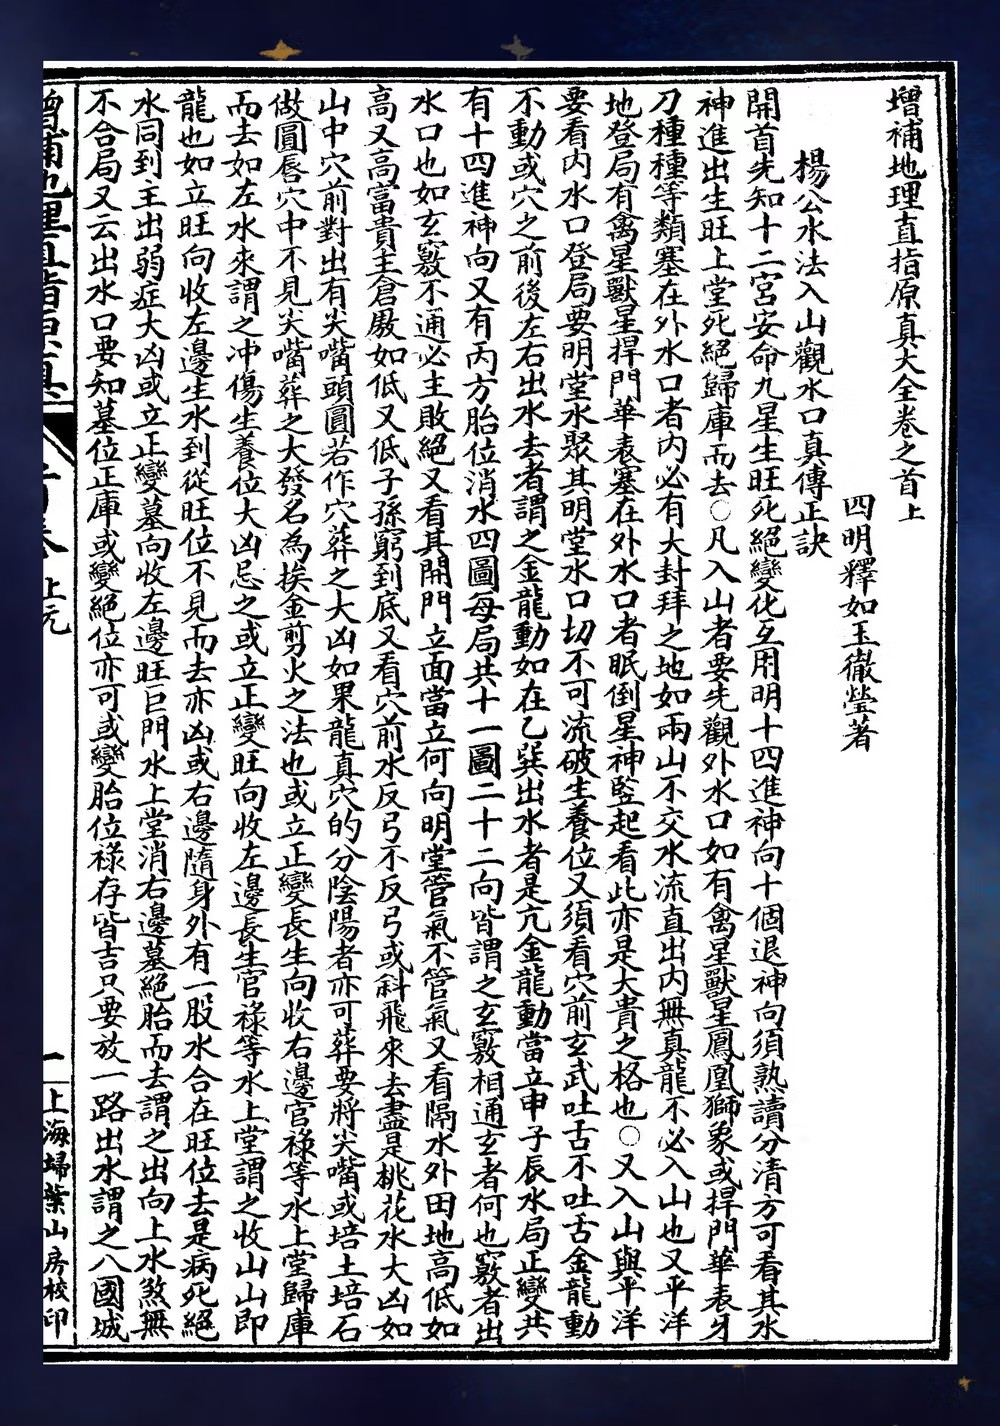 增補地理直指原真大全卷之首上
四明釋如玉徹瑩著
楊公水法入山觀水口真傳正訣
開首先知十二宮安命九星生旺死絕變化互用明十四進神向十個退神向須熟讀分清方可看其水
神進出生旺上堂死絕歸庫而去○凡入山者要先觀外水口如有禽星獸星鳳凰獅象或捍門華表牙
刀種種等類塞在外水口者內必有大封拜之地如兩山不交水流直出內無真龍不必入山也又平洋
地登局有禽星獸星捍門華表塞在外水口者眠倒星神竪起看此亦是大貴之格也○又入山與平洋
要看內水口登局要明堂水聚其明堂水口切不可流破生養位又須看穴前玄武吐舌不吐舌金龍動
不動或穴之前後左右出水去者謂之金龍動如在乙巽出水者是亢金龍動當立申子辰水局正變共
有十四進神向又有丙方胎位消水四圖每局共十一圖二十二向皆謂之玄竅相通玄者何也竅者出
水口也如玄竅不通必主敗絕又看其開門立面當立何向明堂管氣不管氣又看隔水外田地高低如
高又高富貴主倉廒如低又低子孫窮到底又看穴前水反弓不反弓或斜飛來去盡是桃花水大凶如
山中穴前對出有尖嘴頭圓若作穴葬之大凶如果龍真穴的分陰陽者亦可葬要將尖嘴或培土培石
做圓唇穴中不見尖嘴葬之大發名為挨金剪火之法也或立正變長生向收右邊官祿等水上堂歸庫
而去如左水來謂之冲傷生養位大凶忌之或立正變旺向收左邊長生官祿等水上堂謂之收山山即
龍也如立旺向收左邊生水到從旺位不見而去亦凶或右邊隨身外有一股水合在旺位去是病死絕
水同到主出弱症大凶或立正變墓向收左邊旺巨門水上堂消右邊墓絕胎而去謂之出向上水煞無
不合局又云出水口要知墓位正庫或變絕位亦可或變胎位祿存皆吉只要放一路出水謂之八國城
增補地理直指原真
首卷 上元
一 上海埽葉山房校印